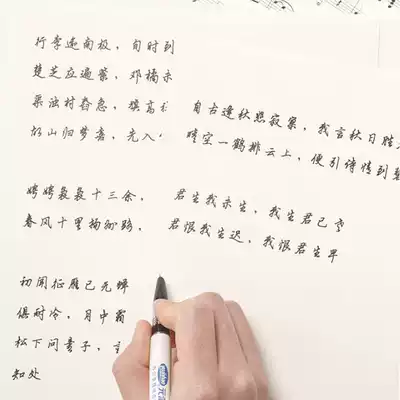 行李遥南极，旬时到
楚芝应遍紫，邓橘未
渠浊村舂急，旗高
故山归梦喜，先入
自古逢秋悲寂寥，我言秋日胜
晴空一鹤排云上，便引诗情到碧
娉娉袅袅十三余，
春风十里扬州路，
君生我未生，我生君已
君恨我生迟，我恨君生早
初闻征雁已无蝉
俱耐冷，月中霜
松下问童子，言
知处